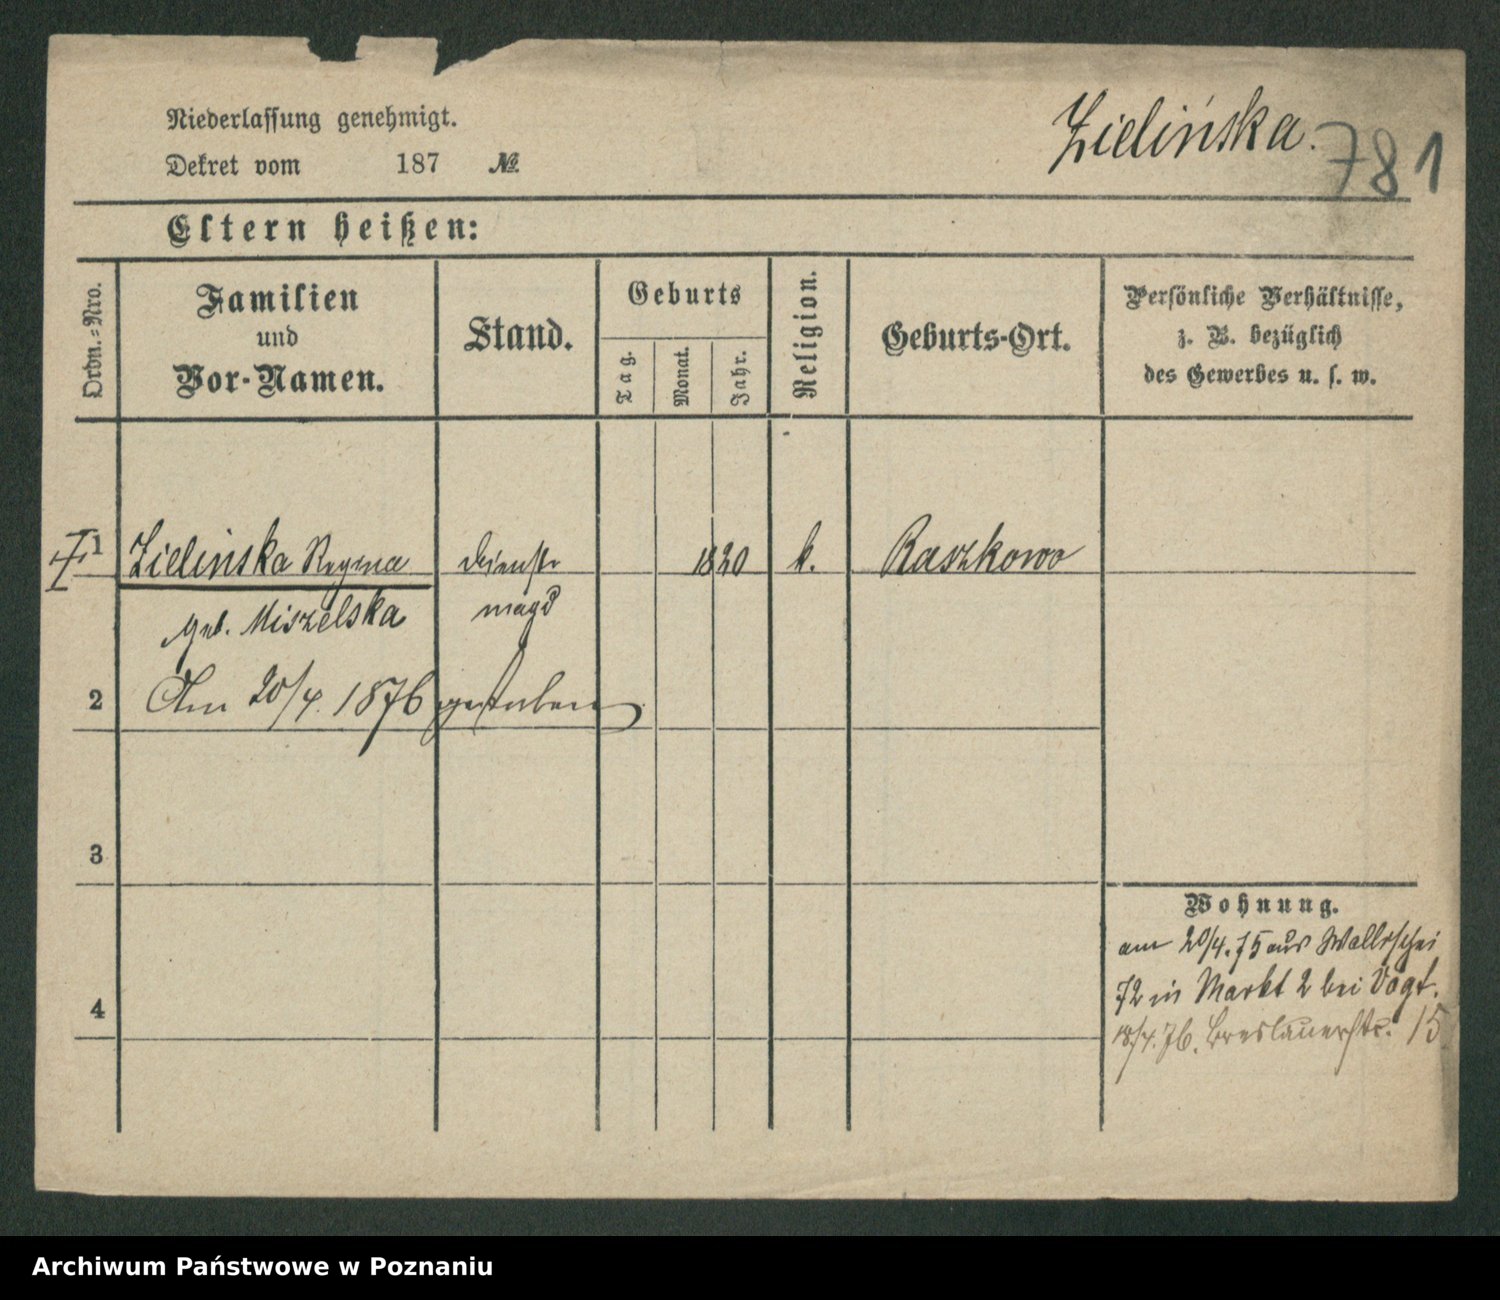 Niederlassung genehmigt.
Dekret vom 187 №
Zielińska.
781
Eltern heißen:
Ordn.-Nro.
Familien
und
Vor-Namen.
Stand.
Geburts
Tag.
Monat.
Jahr.
Religion.
Geburts-Ort.
Persönliche Verhältnisse,
z. B. bezüglich
des Gewerbes u. s. w.
1 Zielińska Regina Dienst 1820 k. Raszkowo
geb. Miszelska magd
2 Am 20/4. 1876 gestorben
3
4
Wohnung.
am 20/4. 75 aus Wallischei
72 in Markt 2 bei Vogt.
18/4. 76. Breslauerstr. 15